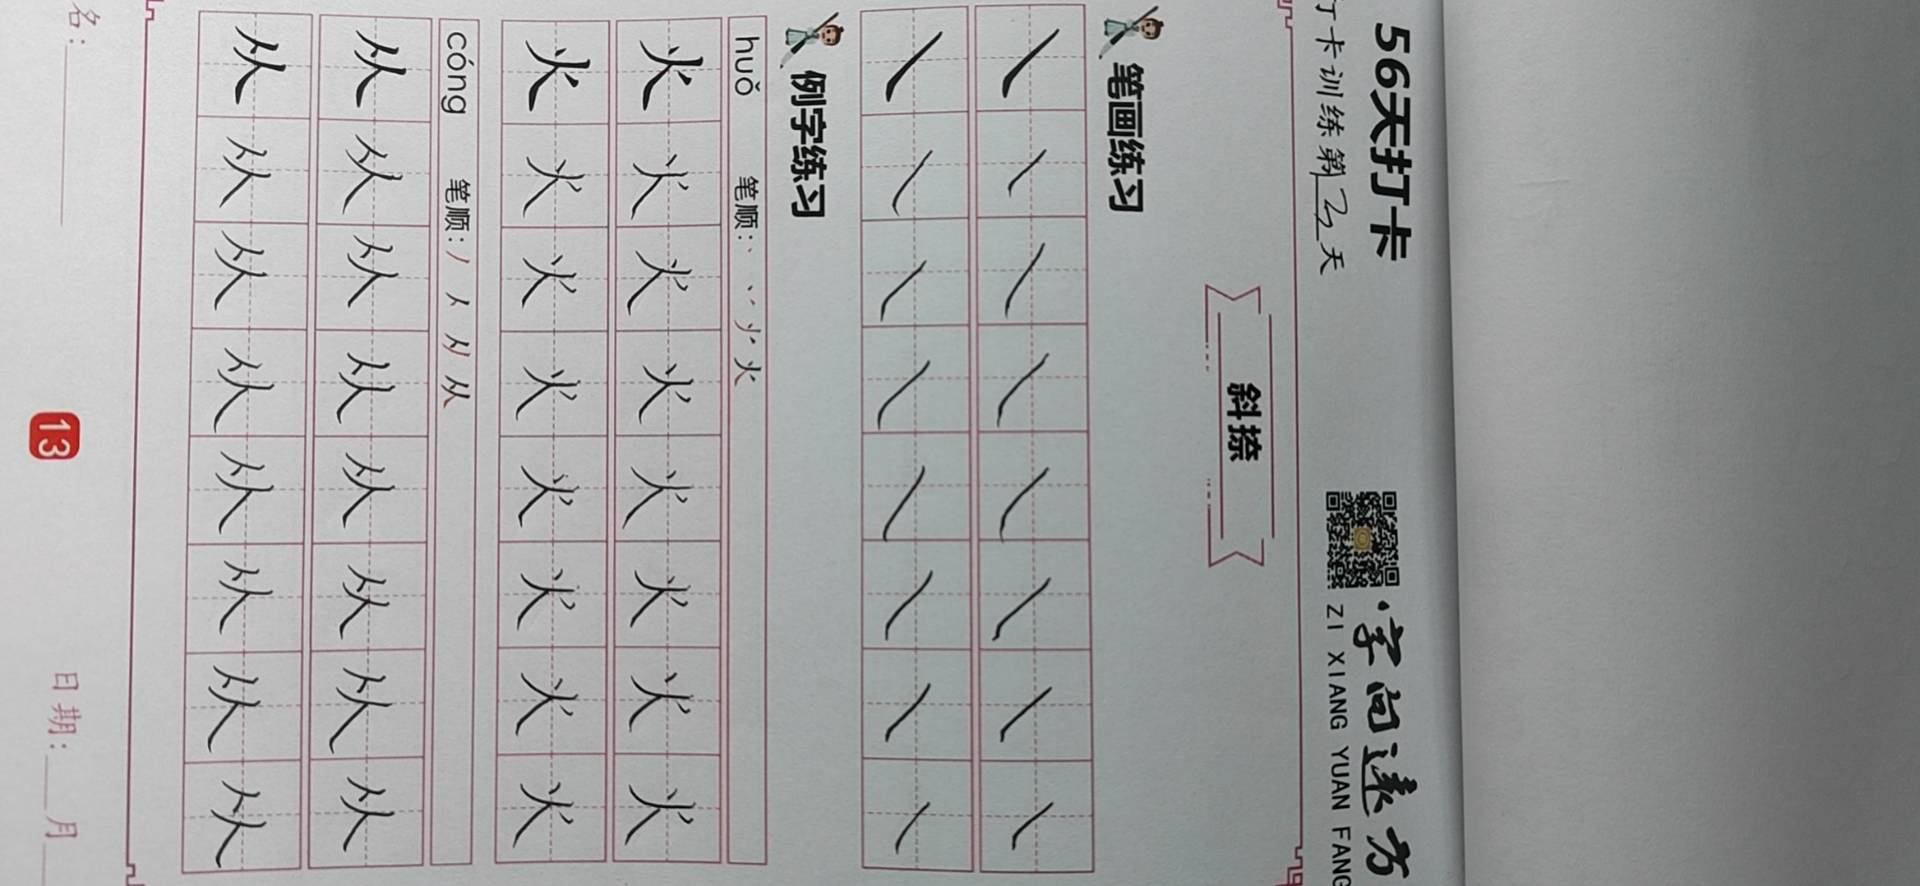 56天打卡
字向远方
打卡训练第3天
ZI XIANG YUAN FANG
斜捺
笔画练习
㇏ ㇏ ㇏ ㇏ ㇏ ㇏ ㇏ ㇏
㇏ ㇏ ㇏ ㇏ ㇏ ㇏ ㇏ ㇏
例字练习
huǒ 笔顺: 火
火 火 火 火 火 火 火 火
火 火 火 火 火 火 火 火
cóng 笔顺: 丿 人 从
从 从 从 从 从 从 从 从
从 从 从 从 从 从 从 从
名: 13 日期: 月